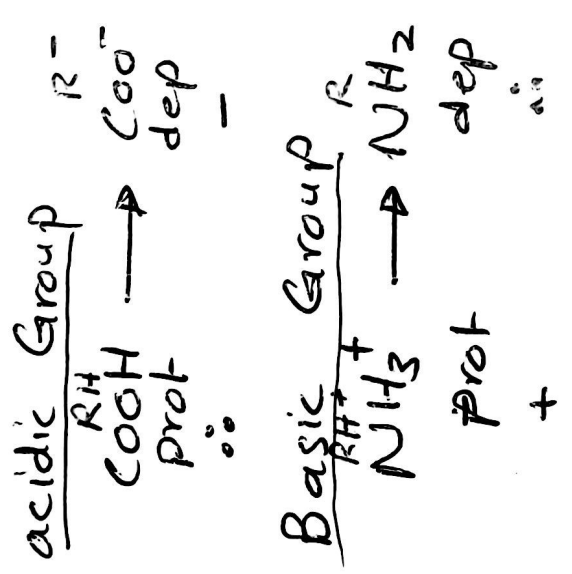 acidic Group
RH R⁻
COOH → COO⁻
prot dep
∴ −
Basic Group
RH⁺ R
NH₃⁺ → NH₂
prot dep
+ ∴